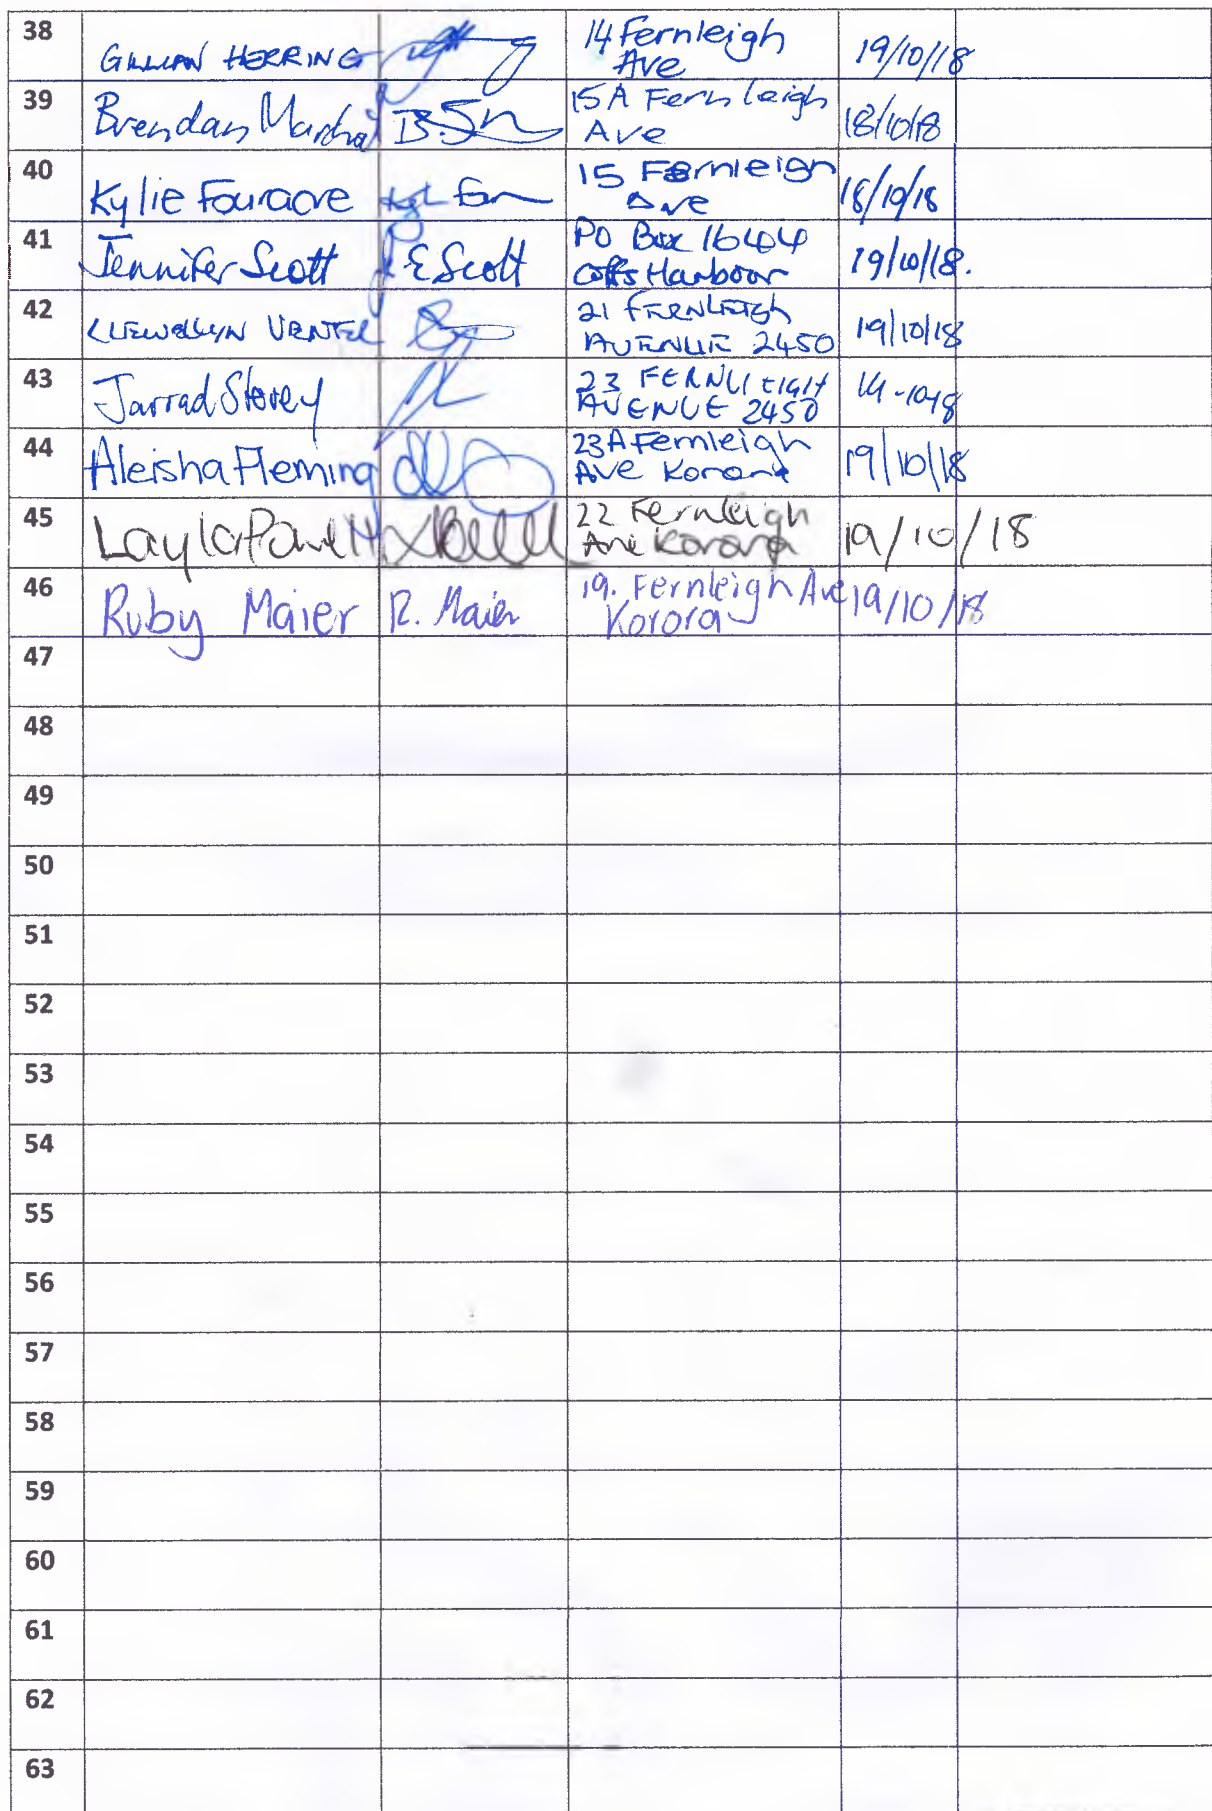 38 GILLIAN HERRING 14 Fernleigh Ave 19/10/18
39 Brendan B.S 15A Fernleigh Ave 18/10/18
40 Kylie Fouracre 15 Fernleigh Ave 18/10/18
41 Jennifer Scott J E Scott PO Box 16404 Coffs Harbour 19/10/18.
42 LLEWELLYN VENTER 21 FERNLEIGH AVENUE 2450 19/10/18
43 Jarrad Storey 23 FERNLEIGH AVENUE 2450
44 Aleisha Fleming 23A Fernleigh Ave Korora 19/10/18
45 Layla 22 Fernleigh Ave Korora 19/10/18
46 Ruby Maier R. Maier 19. Fernleigh Ave Korora 19/10/18
47
48
49
50
51
52
53
54
55
56
57
58
59
60
61
62
63